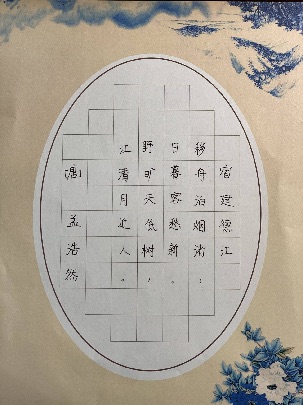 宿建德江
移舟泊烟渚，
日暮客愁新。
野旷天低树，
江清月近人。
唐 孟浩然